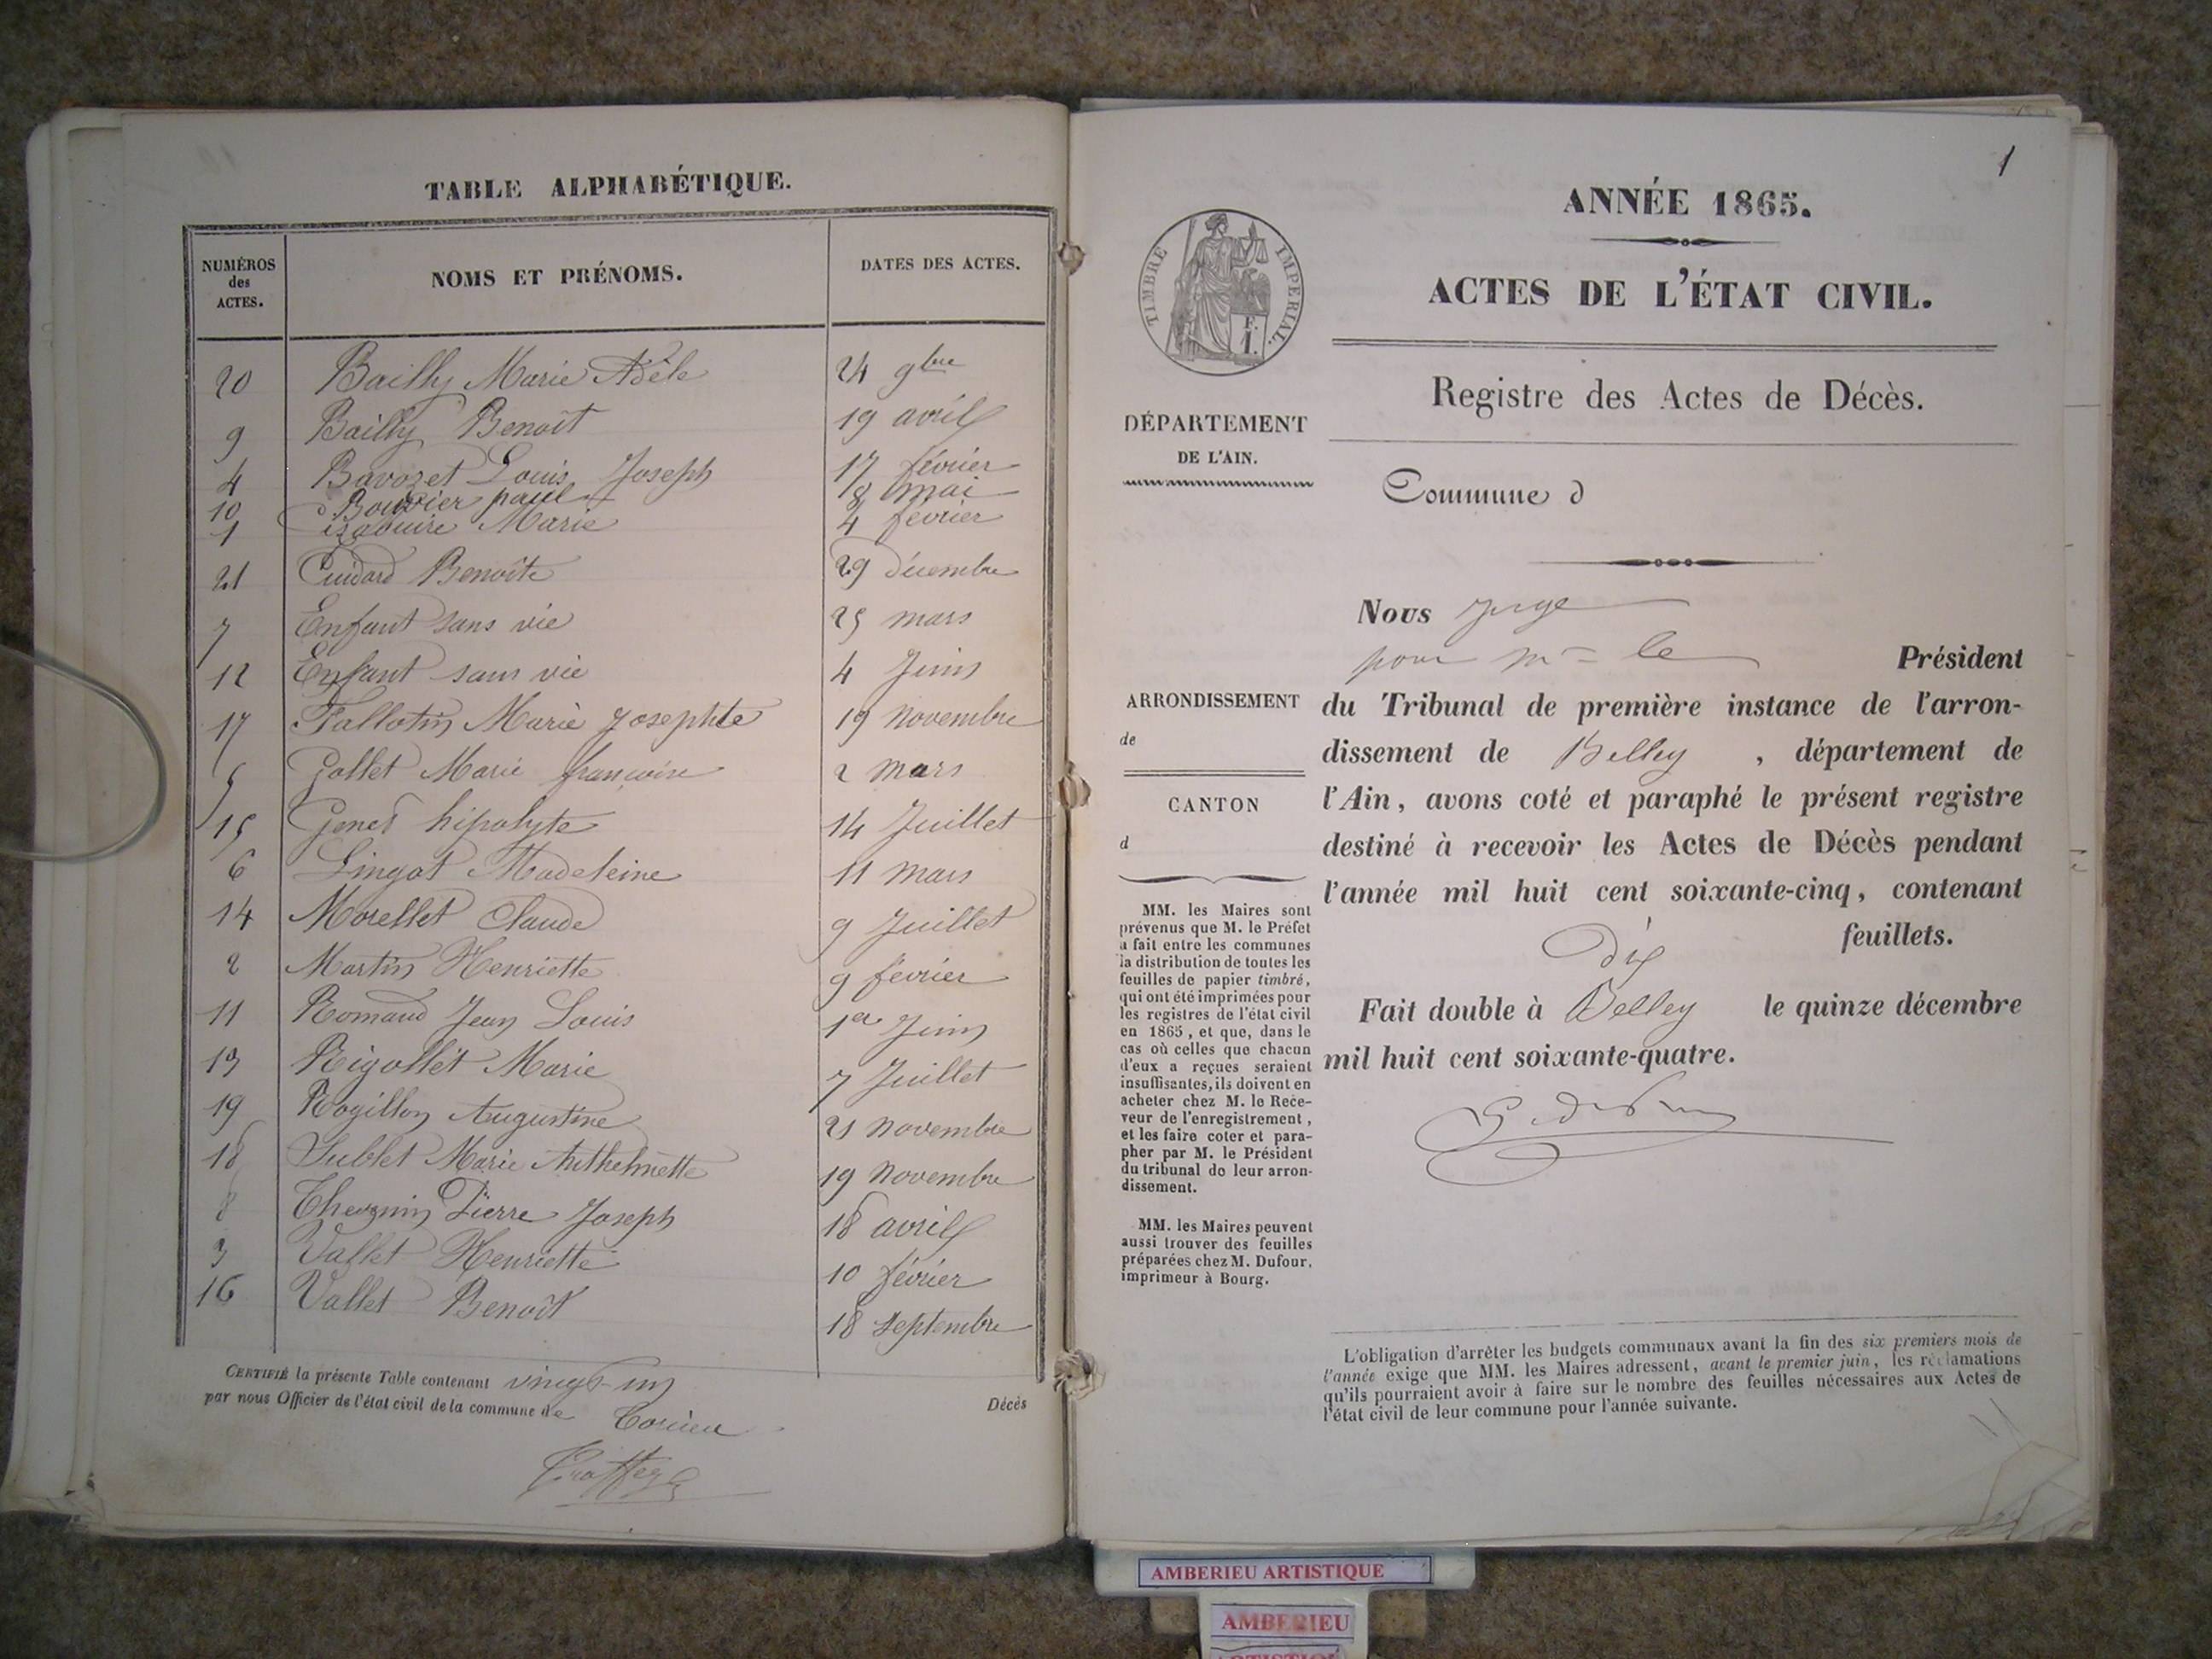 TABLE ALPHABÉTIQUE.
NUMÉROS des ACTES.
NOMS ET PRÉNOMS.
DATES DES ACTES.
20 Bailly Marie Adèle 24 9bre
9 Bailly Benoît 19 avril
4 Bavozet Louis Joseph 17 février
10 Bouvier paul 18 mai
1 Marie 4 février
21 Cuidard Benoîte 29 décembre
7 Enfant sans vie 25 mars
12 Enfant sans vie 4 Juin
17 Fallotin Marie Josephte 19 novembre
5 Gollet Marie françoise 2 mars
15 Genet hipolyte 14 Juillet
6 Lingot Madeleine 11 mars
14 Morellet Claude 9 Juillet
2 Martin Henriette 9 février
11 Romand Jean Louis 1er Juin
13 Rigollet Marie 7 Juillet
19 Rogillon Augustine 21 novembre
18 Sublet Marie Anthelmette 19 novembre
8 Pierre Joseph 18 avril
3 Vallet Henriette 10 février
16 Vallet Benoît 18 septembre
CERTIFIÉ la présente Table contenant vingt-un Décès
par nous Officier de l'état civil de la commune de Torcieu
1
ANNÉE 1865.
TIMBRE IMPÉRIAL.
F. 1.
ACTES DE L'ÉTAT CIVIL.
Registre des Actes de Décès.
DÉPARTEMENT
DE L'AIN.
Commune d
Nous Juge
pour mr le Président
ARRONDISSEMENT
de
CANTON
d
du Tribunal de première instance de l'arron-
dissement de Belley , département de
l'Ain, avons coté et paraphé le présent registre
destiné à recevoir les Actes de Décès pendant
l'année mil huit cent soixante-cinq, contenant
Dix feuillets.
Fait double à Belley le quinze décembre
mil huit cent soixante-quatre.
MM. les Maires sont
prévenus que M. le Préfet
a fait entre les communes
la distribution de toutes les
feuilles de papier timbré,
qui ont été imprimées pour
les registres de l'état civil
en 1865, et que, dans le
cas où celles que chacun
d'eux a reçues seraient
insuffisantes, ils doivent en
acheter chez M. le Rece-
veur de l'enregistrement,
et les faire coter et para-
pher par M. le Président
du tribunal de leur arron-
dissement.
MM. les Maires peuvent
aussi trouver des feuilles
préparées chez M. Dufour,
imprimeur à Bourg.
L'obligation d'arrêter les budgets communaux avant la fin des six premiers mois de
l'année exige que MM. les Maires adressent, avant le premier juin, les réclamations
qu'ils pourraient avoir à faire sur le nombre des feuilles nécessaires aux Actes de
l'état civil de leur commune pour l'année suivante.
AMBERIEU ARTISTIQUE
AMBERIEU
ARTISTIQUE